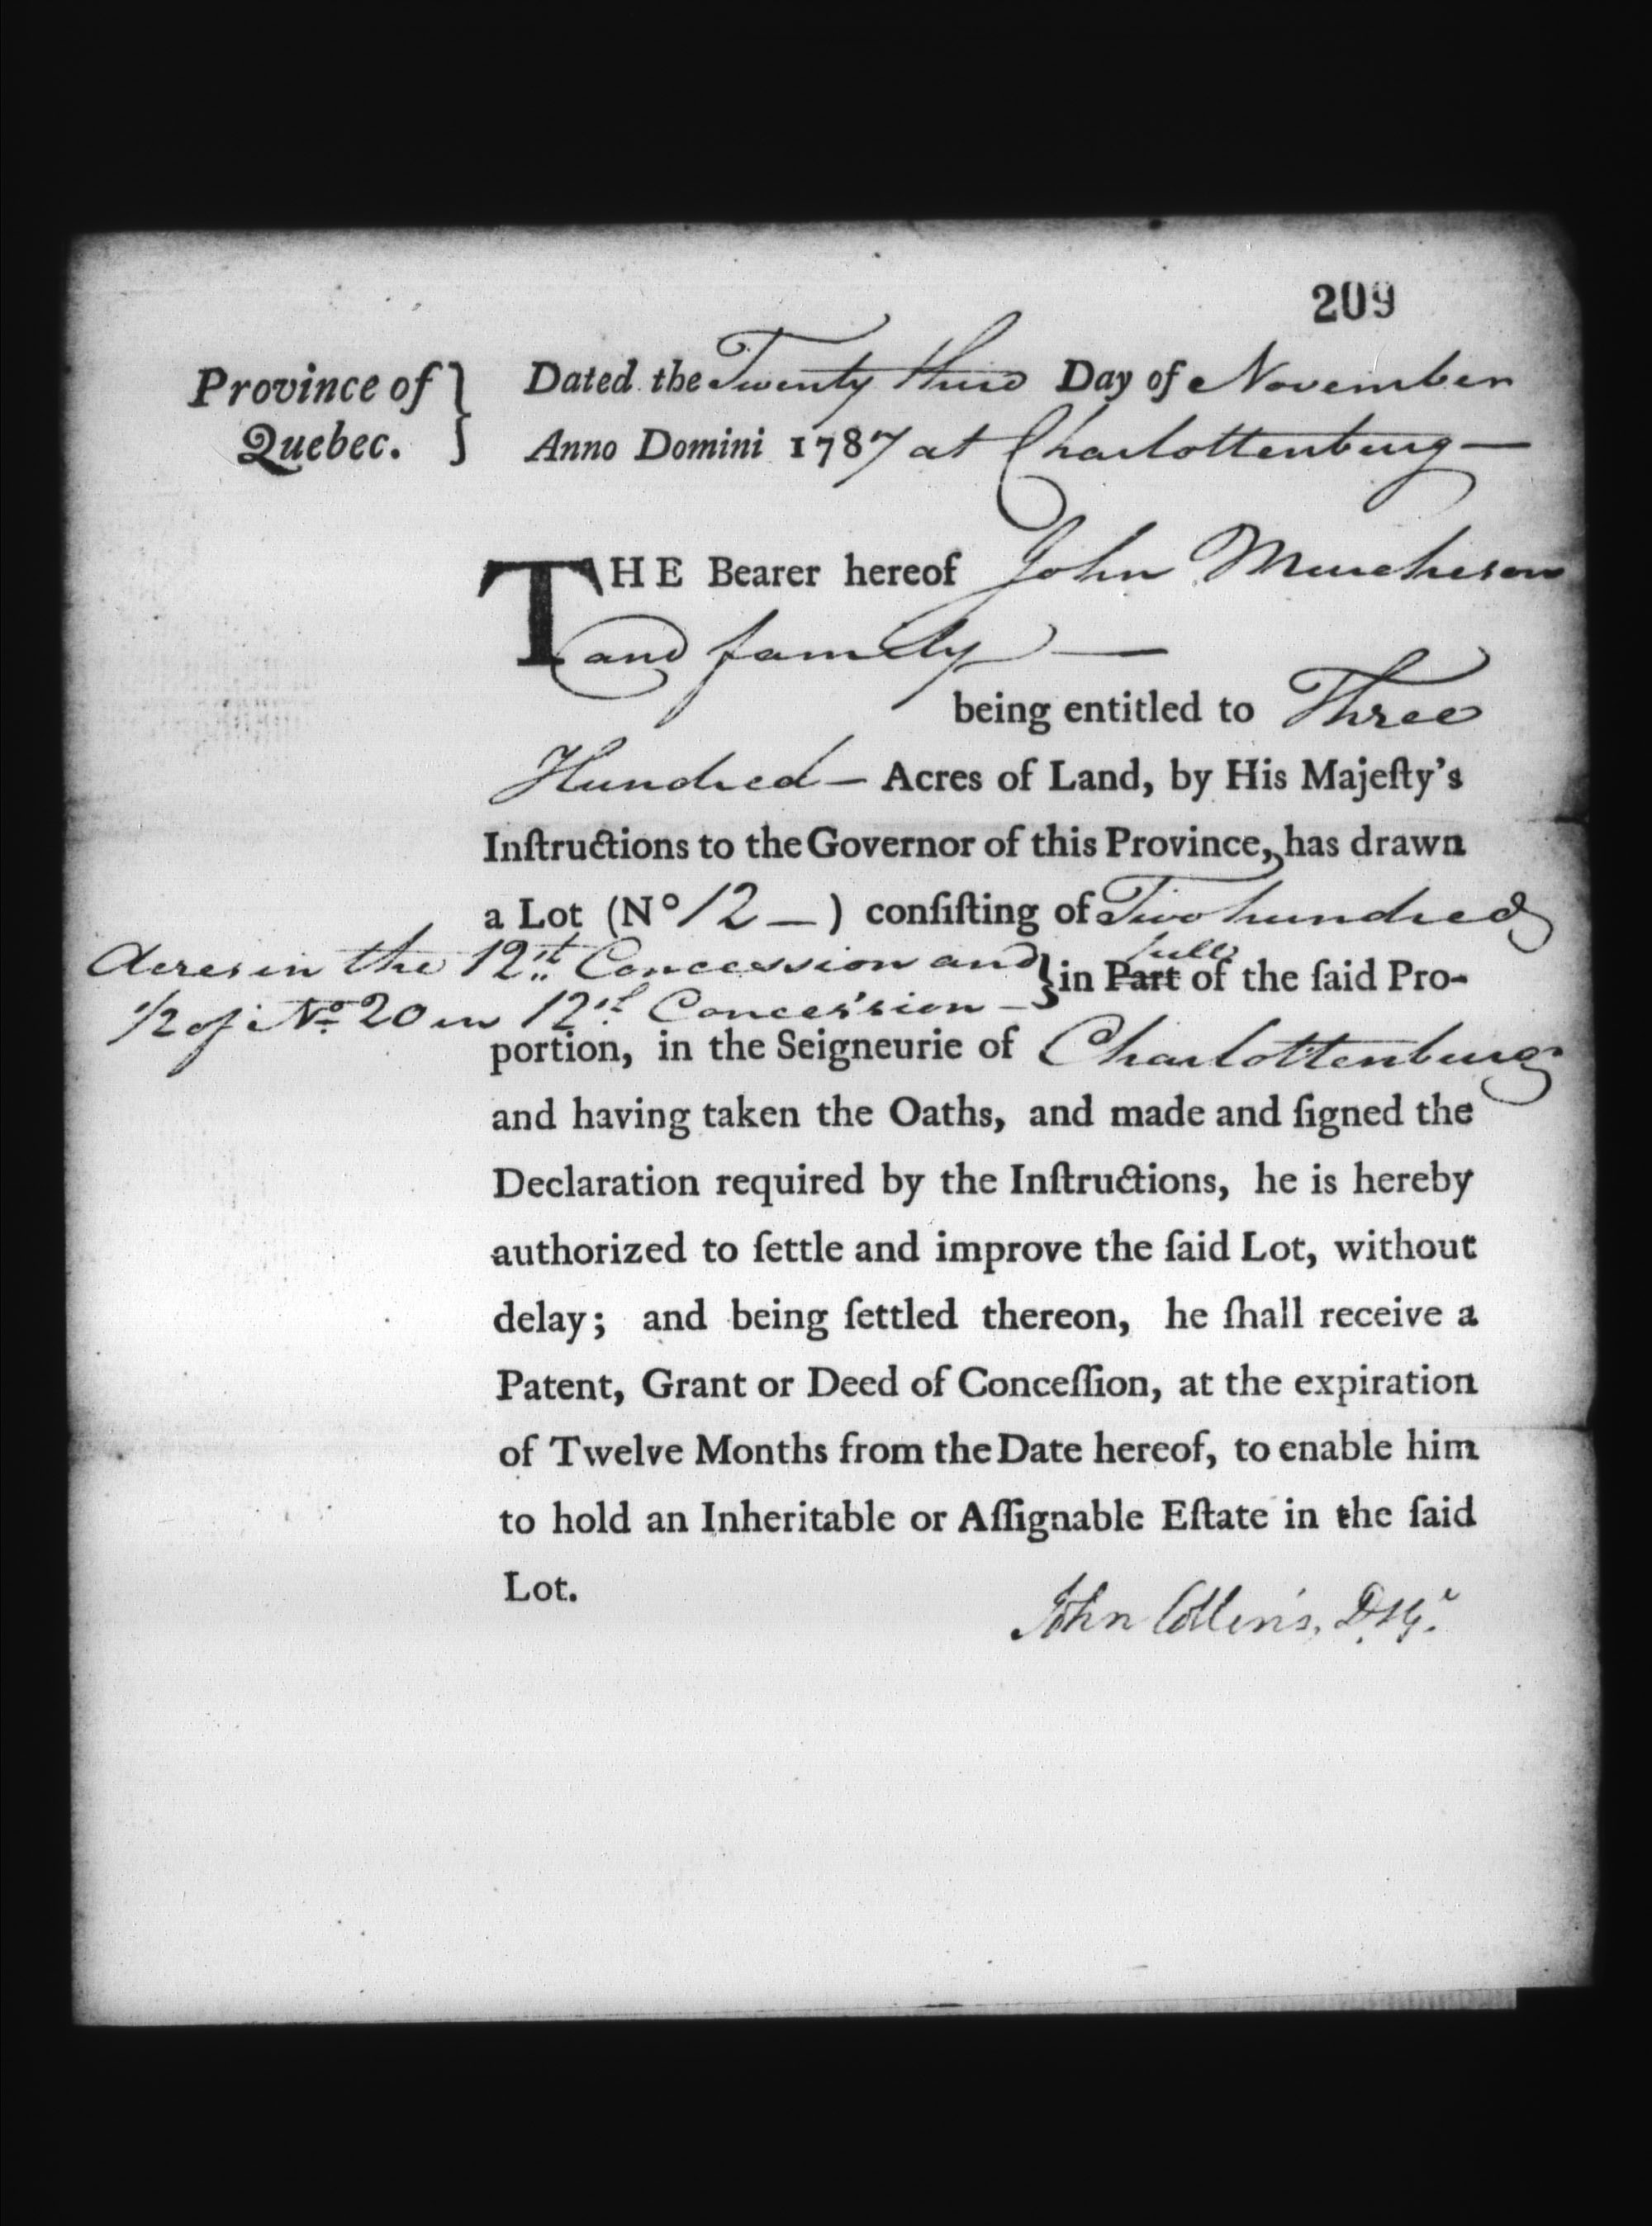 209
Province of } Dated the Twenty third Day of November
Quebec. } Anno Domini 1787 at Charlottenburg —
THE Bearer hereof John Murcheson
and family —
being entitled to Three
Hundred — Acres of Land, by His Majeſty's
Inſtructions to the Governor of this Province, has drawn
a Lot (No 12 — ) conſiſting of Two hundred
Acres in the 12th Concession and } in Part full of the ſaid Pro-
1/2 of No 20 in 12th Concession —
portion, in the Seigneurie of Charlottenburg
and having taken the Oaths, and made and ſigned the
Declaration required by the Inſtructions, he is hereby
authorized to ſettle and improve the ſaid Lot, without
delay; and being ſettled thereon, he ſhall receive a
Patent, Grant or Deed of Conceſſion, at the expiration
of Twelve Months from the Date hereof, to enable him
to hold an Inheritable or Aſſignable Eſtate in the ſaid
Lot.
John Collins, D.S.G.